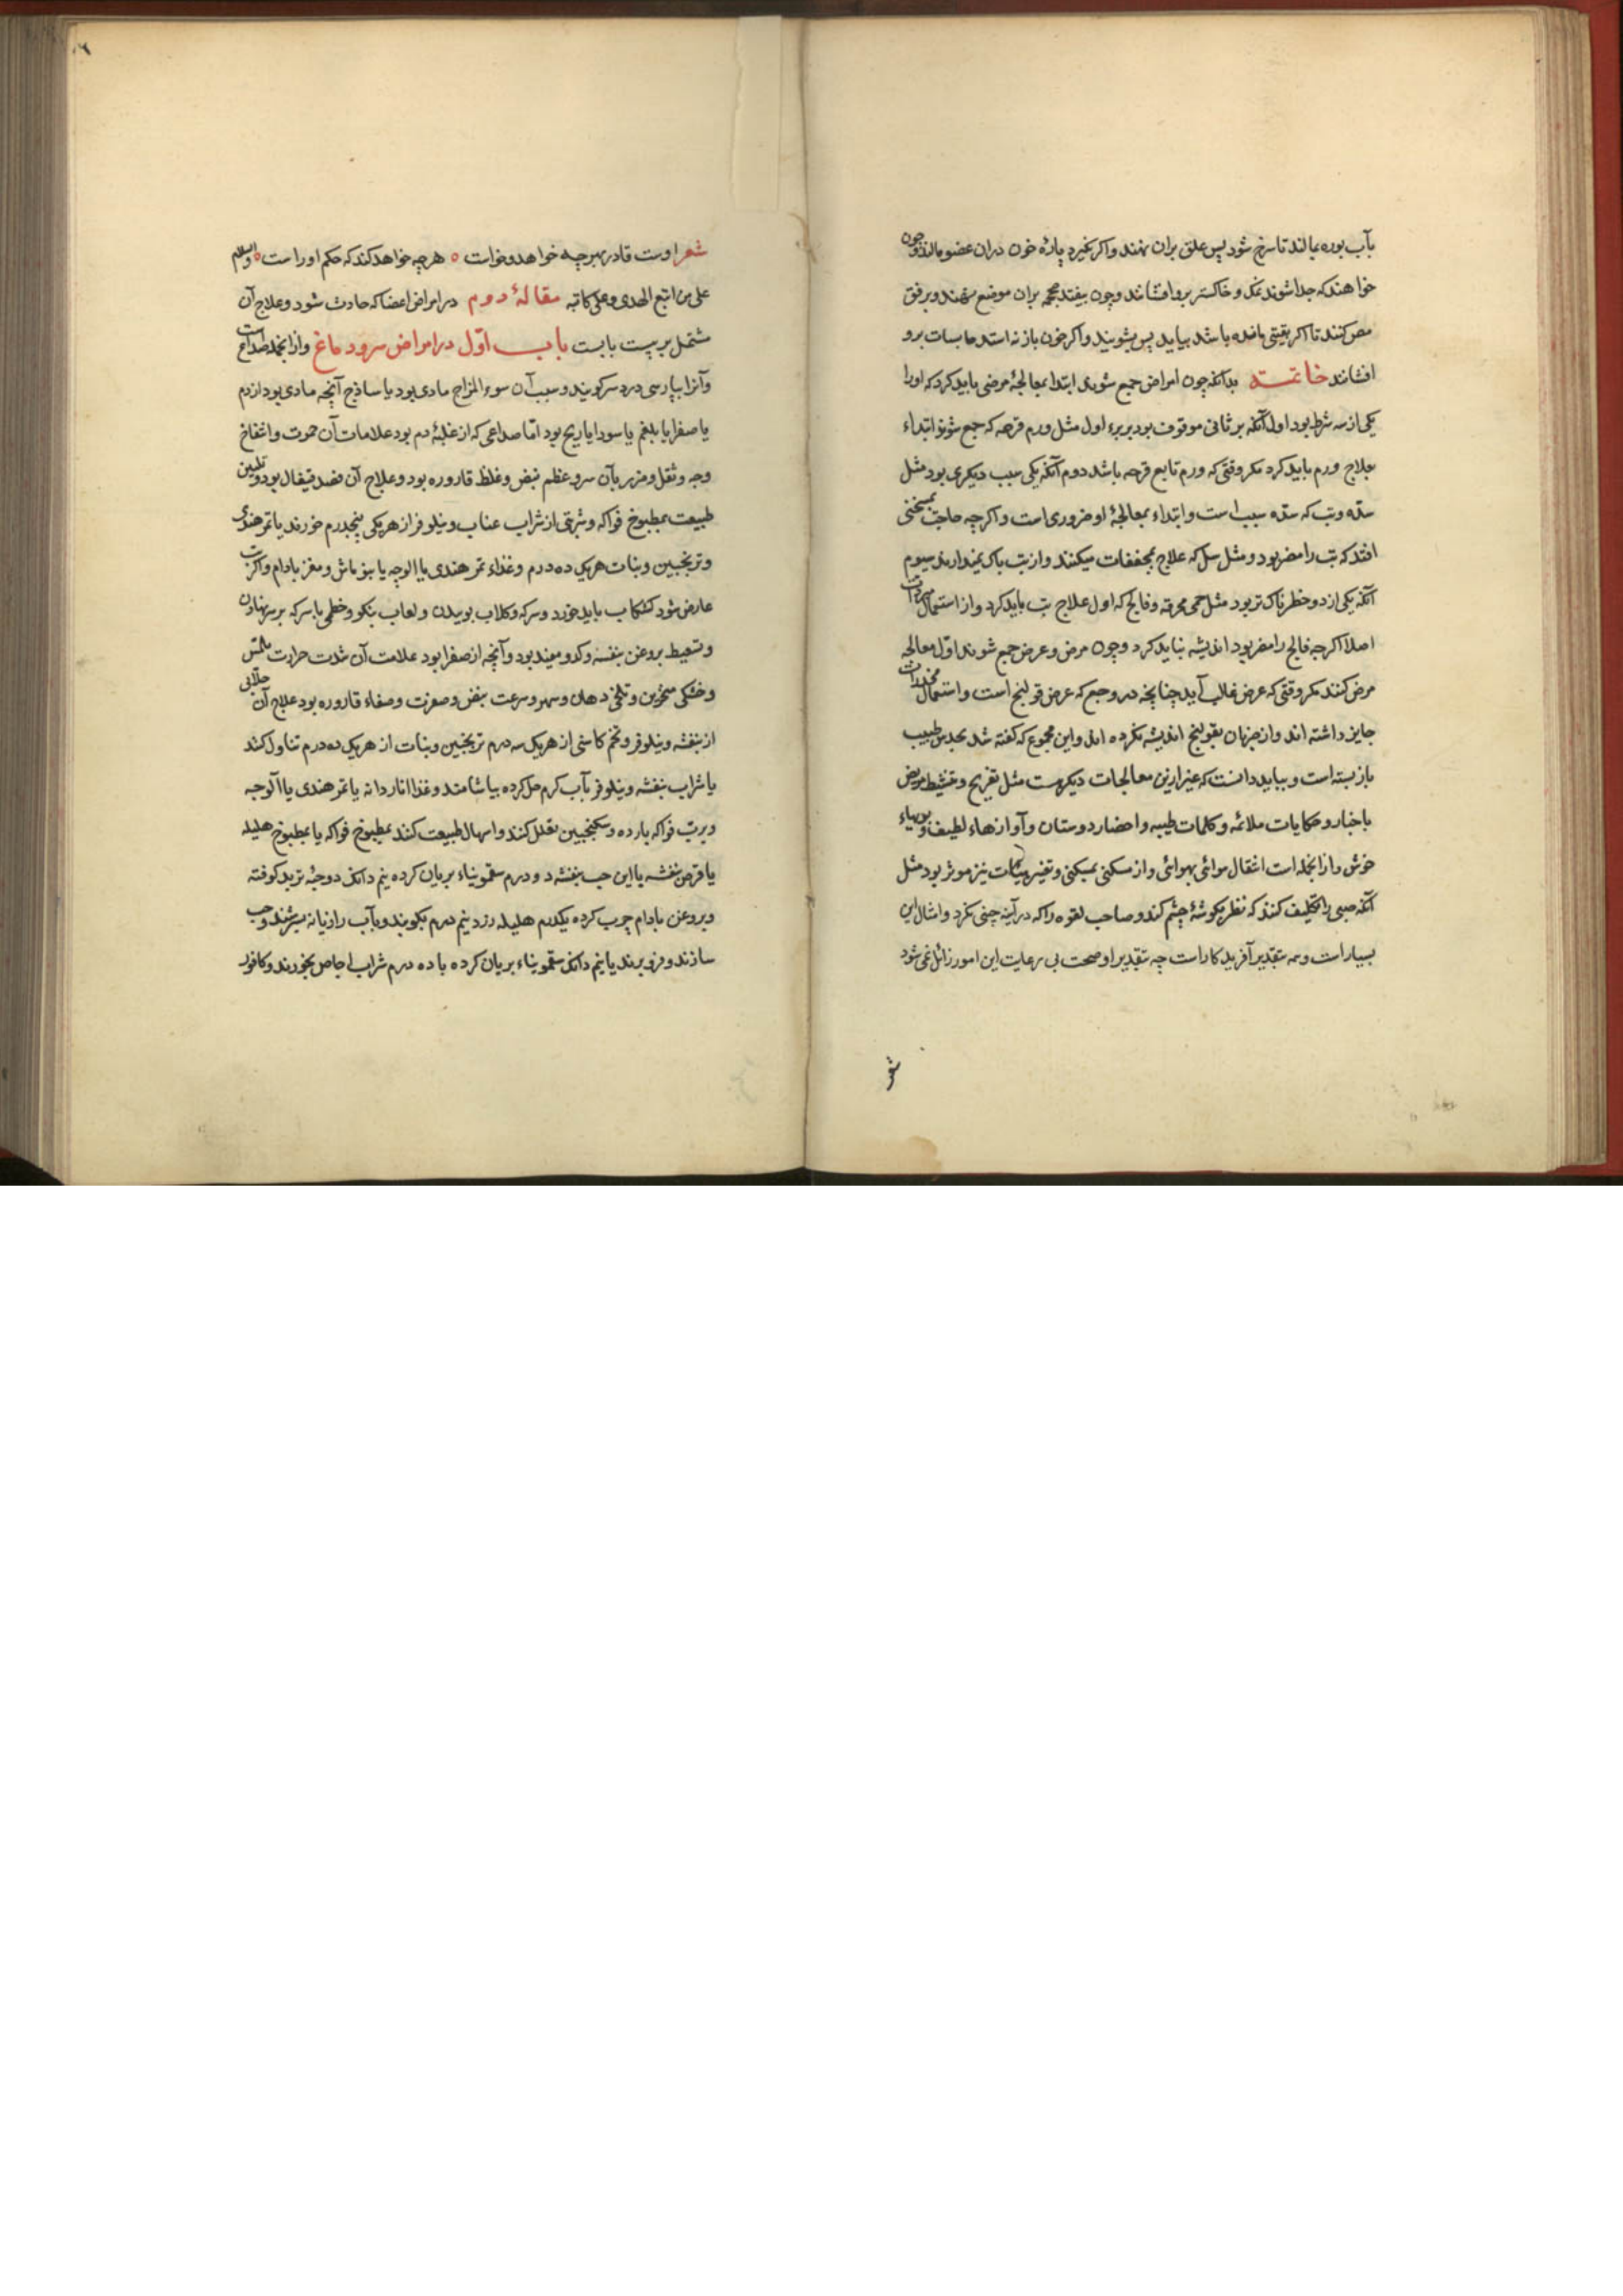 بآب بوره بمالند تا سرخ شود پس علق بران نهند واکر نکیرد پارۀ خون دران عضو مالند وچون
خواهند که جدا شوند نمک و خاکستر برو افشانند وچون بیفتد محجمه بران موضع نهند وبرفق
مص کنند تا اکر بقیتی مانده باشد بیاید پس بشویند واکر خون باز نه استد حابسات برو
افشانند خاتمـــه بدانکه چون امراض جمع شوند ابتدا بمعالجۀ مرضی باید کرد که اورا
یکی از سه شرط بود اول آنکه برء ثانی موقوف بود بر برء اول مثل ورم قرحه که جمع شوند ابتداء
بعلاج ورم باید کرد مکر وقتی که ورم تابع قرحه باشد دوم آنکه یکی سبب دیکری بود مثل
سده وتب که سده سبب است وابتداء بمعالجۀ او ضروری است واکرچه حاجت بمسخنی
افتد که تب را مضر بود ومثل سل که علاج بمجففات میکنند واز تب باک نمیدارند سیوم
آنکه یکی از دو خطرناک تر بود مثل حمی محرقه وفالج که اول علاج تب باید کرد واز استعمال مبردات
اصلا اکرچه فالج را مضر بود اندیشه نباید کرد وچون مرض وعرض جمع شوند اول معالجه
مرض کنند مکر وقتی که عرض غالب آید چنانچه در وجع که عرض قولنج است واستعمال مخدرات
جایز داشته اند واز ضرر آن بقولنج اندیشه نکرده اند واین مجموع که کفته شد بحدس طبیب
باز بسته است وبباید دانست که غیر ازین معالجات دیکر هست مثل تفریح وتنشیط مریض
باخبار وحکایات ملائمه وکلمات طیبه واحضار دوستان وآوازهاء لطیف وبویهاء
خوش واز انجمله است انتقال از هوائی بهوائی واز مسکنی بمسکنی وتغییر هیئات نیز موثر بود مثل
آنکه صبی را تکلیف کنند که نظر بکوشۀ چشم کند وصاحب لقوه را که در آینه چینی نکرد وامثال این
بسیار است وهمه بتقدیر آفریدکار است چه بتقدیر او صحت بی رعایت این امور زائل نمی شود
شعر
شعر اوست قادر بهرچه خواهد وخواست ٥ هرچه خواهد کند که حکم اوراست ٥ والسلام
علی من اتبع الهدی وعلی کاتبه مقالۀ دوم در امراض اعضا که حادث شود وعلاج آن
مشتمل بر بیست بابست باب اول در امراض سر ودماغ واز انجمله صداع است
وآنرا بپارسی درد سر کویند وسبب آن سوء المزاج مادی بود یا ساذج آنچه مادی بود از دم
یا صفرا یا بلغم یا سودا یا ریح بود اما صداعی که از غلبۀ دم بود علامات آن حمرت وانتفاخ
وجه وثقل وضربان سر وعظم نبض وغلظ قاروره بود وعلاج آن فصد قیفال بود وتلیین
طبیعت بمطبوخ فواکه وشربتی از شراب عناب ونیلوفر از هر یکی پنجدرم خورند یا تمر هندی
وترنجبین ونبات هر یکی ده درم وغذاء تمر هندی یا الوچه یا بنو ماش ومغز بادام واکر تب
عارض شود کشکاب باید خورد وسرکه وکلاب بوییدن ولعاب بنکو وخطمی با سرکه بر سر نهادن
وتسعیط بروغن بنفشه وکدو مفید بود وآنچه از صفرا بود علامت آن شدت حرارت ملتمس
وخشکی منخرین وتلخی دهان وسهر وسرعت نبض وصفرت وصفاء قاروره بود علاج آن جلابی
از بنفشه ونیلوفر وتخم کاسنی از هر یک سه درم ترنجبین ونبات از هر یک ده درم تناول کنند
یا شراب بنفشه ونیلوفر بآب کرم حل کرده بیاشامند وغذا اناردانه یا تمر هندی یا آلوچه
وبرب فواکه بارده وسکنجبین تعلل کنند واسهال طبیعت کنند بمطبوخ فواکه یا بمطبوخ هلیله
یا قرص بنفشه یا این حب بنفشه دو درم سقمونیاء بریان کرده نیم دانک دو حبه تربد کوفته
وبروغن بادام چرب کرده یکدرم هلیله زرد نیم درم بکوبند وبآب رازیانه بسرشند وحب
سازند وفرو برند یا نیم دانک سقمونیاء بریان کرده با ده درم شراب اجاص بخورند وکافور